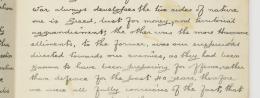 War always developes the two sides of nature
one is Greed, lust for money, and territorial
aggrandisement; the other was the most Humane
ellements, to the former, were our suspicions
directed towards our enemies, as they had been
known to have been preparing for offence, rather
than defence for the past 40 years, therefore
we were all fully conscious of the fact, that